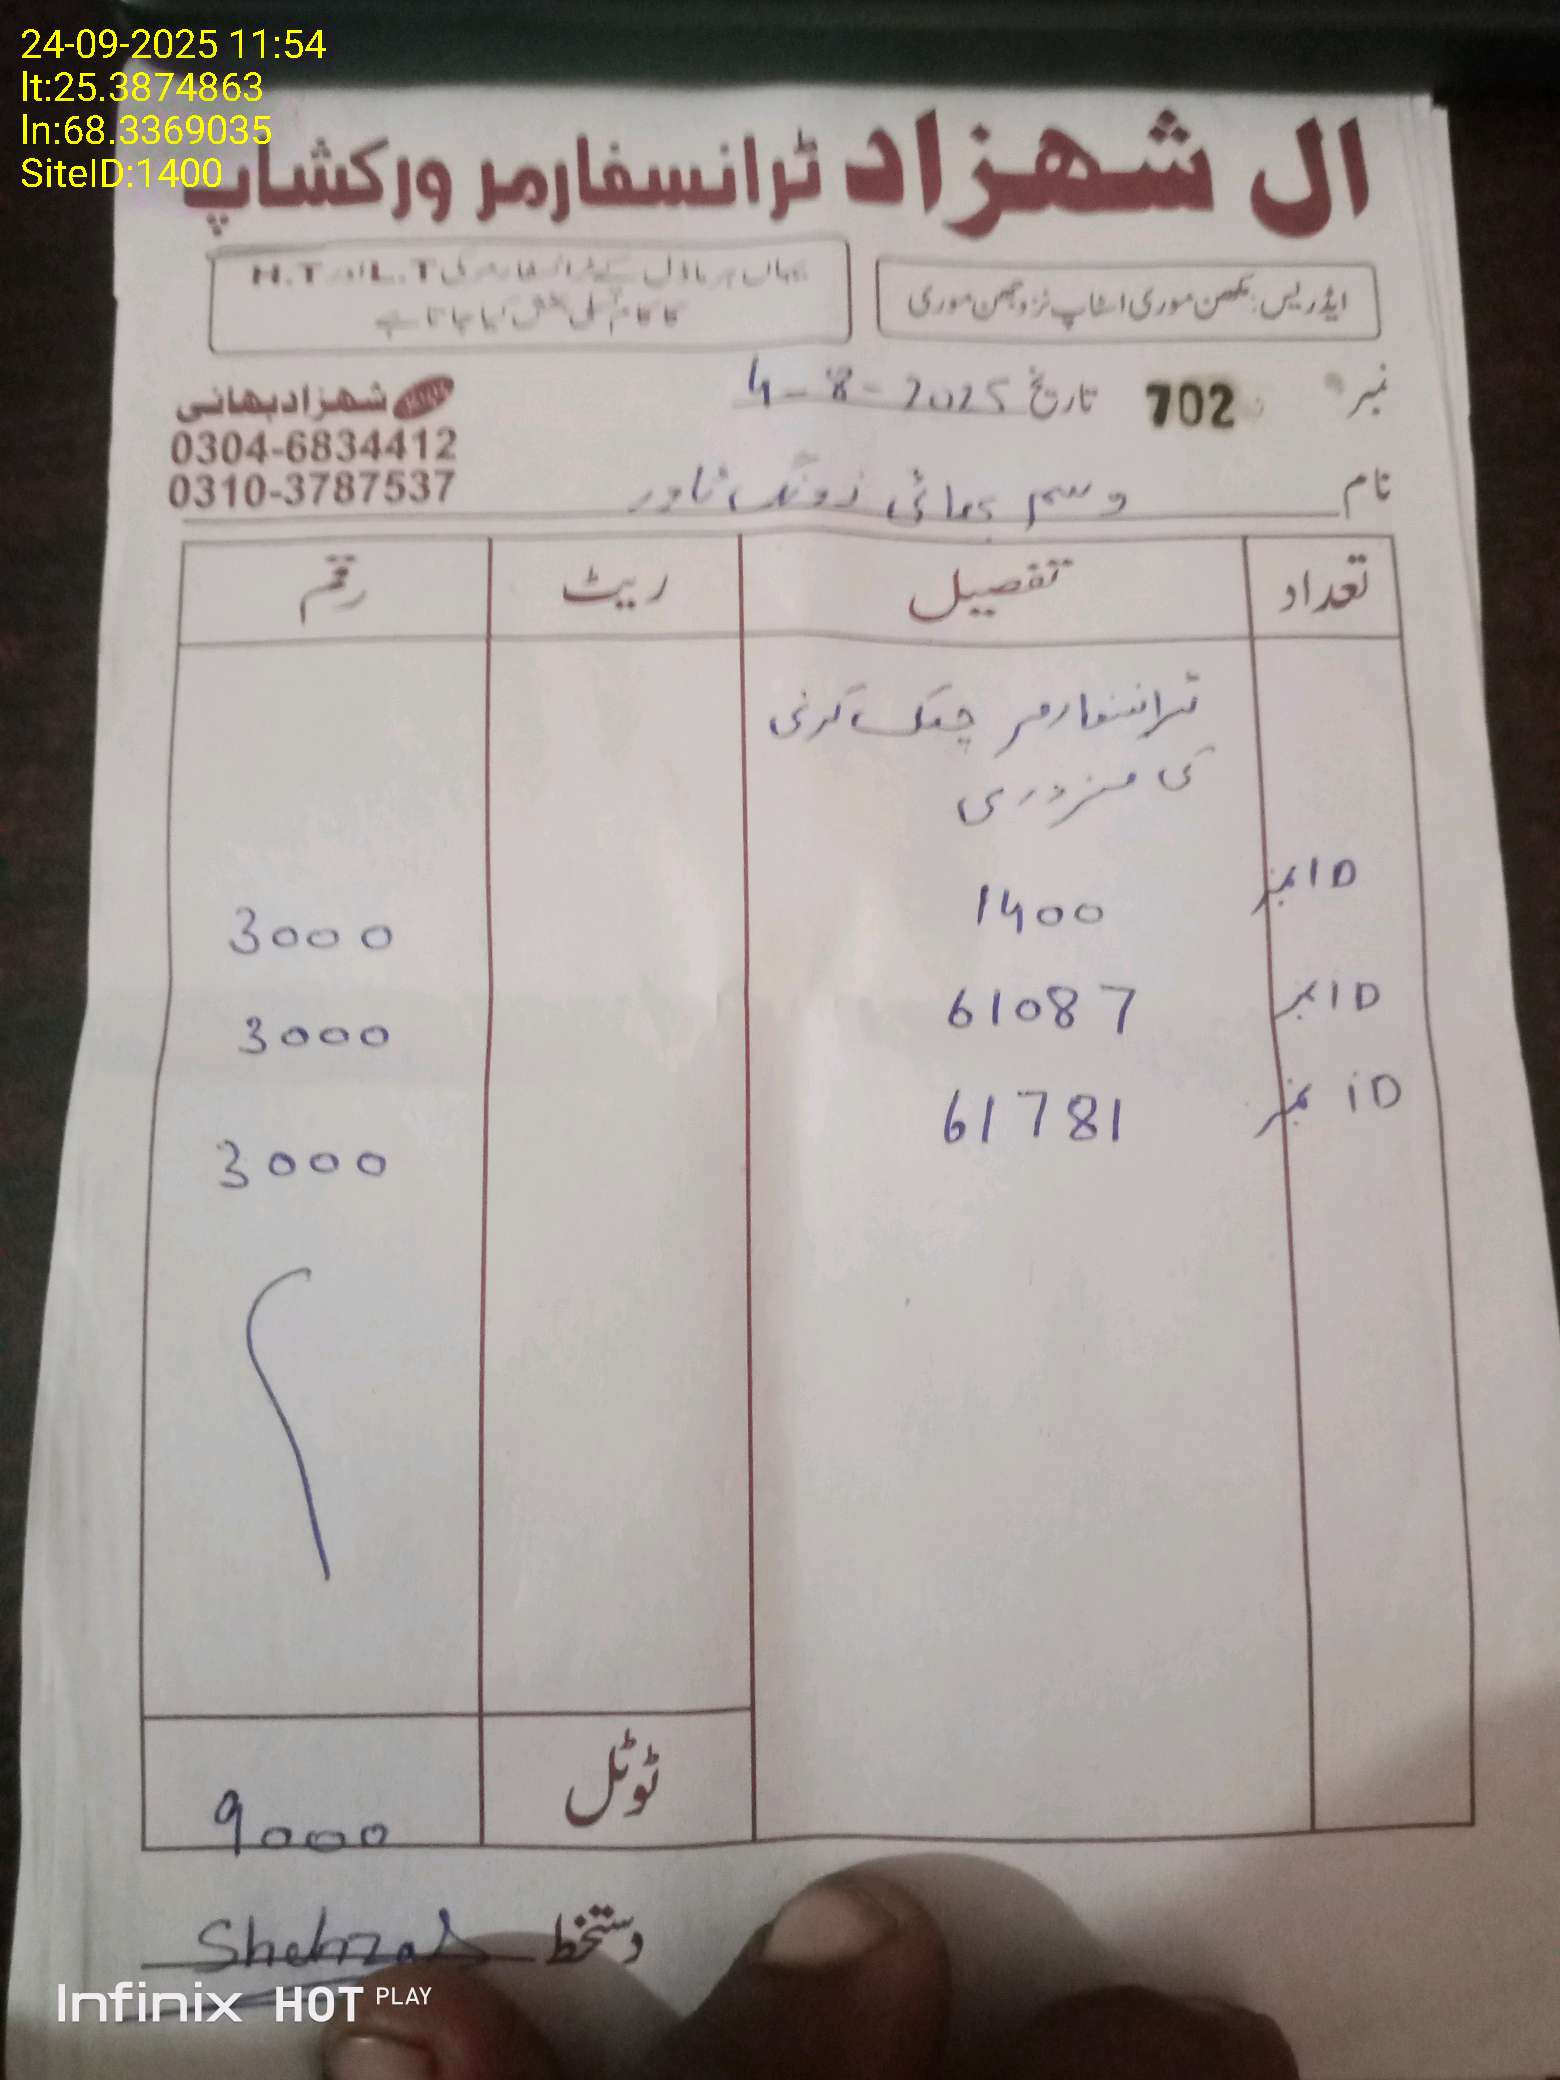 24-09-2025 11:54
lt:25.3874863
ln:68.3369035
SiteID:1400
ال شهزاد ٹرانسفارمر ورکشاپ
ایڈریس: مکھن موری اسٹاپ نزد مکھن موری
یہاں ہر ماڈل کے ٹرانسفارمر کی L.T اور H.T
کا کام تسلی بخش کیا جاتا ہے
نمبر 702 تاریخ 4-8-2025
شهزاد بھائی
0304-6834412
0310-3787537
نام وسیم بھائی زونگ ٹاور
تعداد تفصیل ریٹ رقم
ٹرانسفارمر چیک کرنی
کی مزدوری
ID نمبر 1400 3000
ID نمبر 61087 3000
iD نمبر 61781 3000
ٹوٹل 9000
دستخط Shehzad
Infinix HOT PLAY